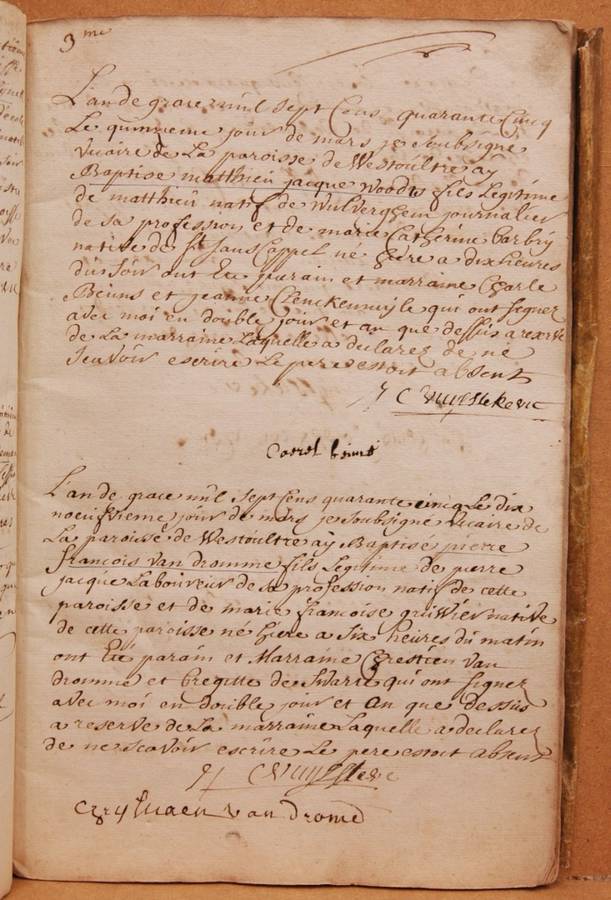 3me
L'an de grace mil sept Cens quarante Cinq
Le quinzieme jour de mars je soubsigné
vicaire de La paroisse de Westoultre ay
Baptisé matthieu jacque woodts fils Legitime
de matthieu natif de Wulverghem journalier
de sa profession et de marie Catherine Barbry
native de St jans Cappel né hiere a dix heures
du soir ont été parain et marraine Charle
Beuns et jeanne Clenckemuyle qui ont signez
avec moi en double jour et an que dessus a reserve
de La marraine Laquelle a declarez de ne
scavoir escrire Le pere estoit absent
C Vuylstekere
Carel beuns
L'an de grace mil sept Cens quarante cincq Le dix
noeufvieme jour de mars je soubsigné vicaire de
La paroisse de Westoultre ay Baptisé pierre
francois van dromme fils Legitime de pierre
jacque Laboureur de sa profession natif de cette
paroisse et de marie francoise qui
native
de cette paroisse né hiere a six heures du matin
ont été parain et Marraine Chrestien van
dromme et Bregitte de Swarte qui ont signez
avec moi en double jour et an que dessus
a reserve de La marraine Laquelle a declarez
de ne scavoir escrire Le pere estoit absent
C Vuylstekere
van drome